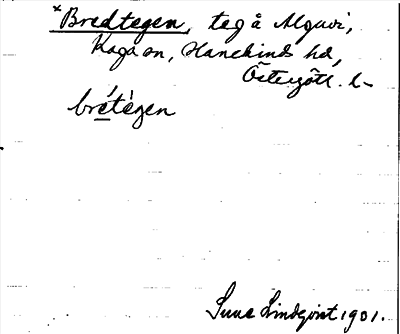 *Bredtegen, teg å Alguvi,
Kaga sn, Hanekinds hd,
Östergötl. l-
brétègen
Sune Lindqvist 1901.